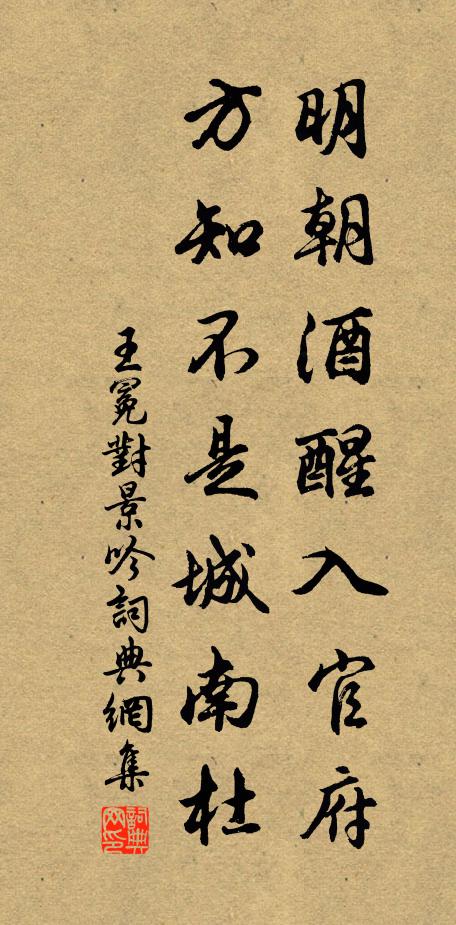 明朝酒醒入官府
方知不是城南杜
王冕對景吟詞典網集
詞典網印